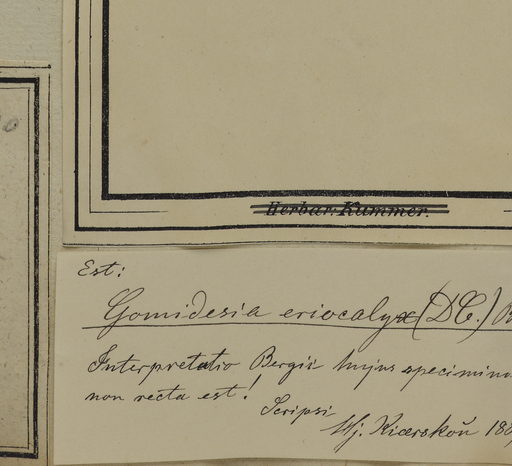 Herbar. Kummer.
Est:
Gomidesia eriocalyx (DC.) B
Interpretatio Bergii hujus speciminis
non recta est!
Scripsi
Hj. Kiærskoů 188